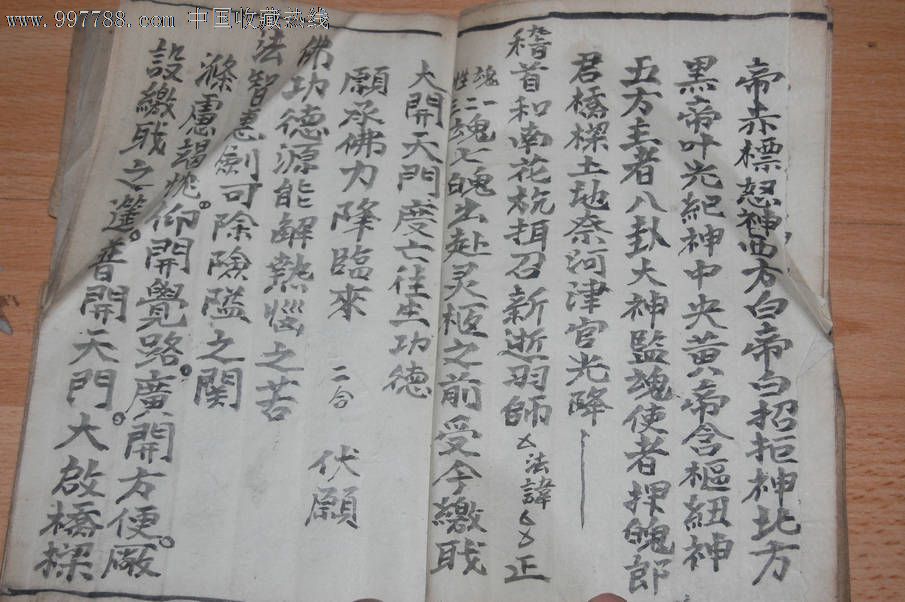 www.997788.com 中国收藏热线
帝赤標怒神西方白帝白招拒神北方
黑帝叶光紀神中央黄帝含樞紐神
五方主者八卦大神監魂使者押魄郎
君橋樑土地奈河津官光降
稽首和南花枕揖召新逝羽師厶法諱厶厶正
魂一二魂七魄出赴灵柩之前受今繳戝
大開天門度亡往生功德
願承佛力降臨來 二合 伏願
佛功德源能解熱惱之苦
法智慧劍可除險隘之関
滌慮竭忱。仰開覺路。廣開方便。厰
設繳戝之筵。普開天門。大啟橋樑